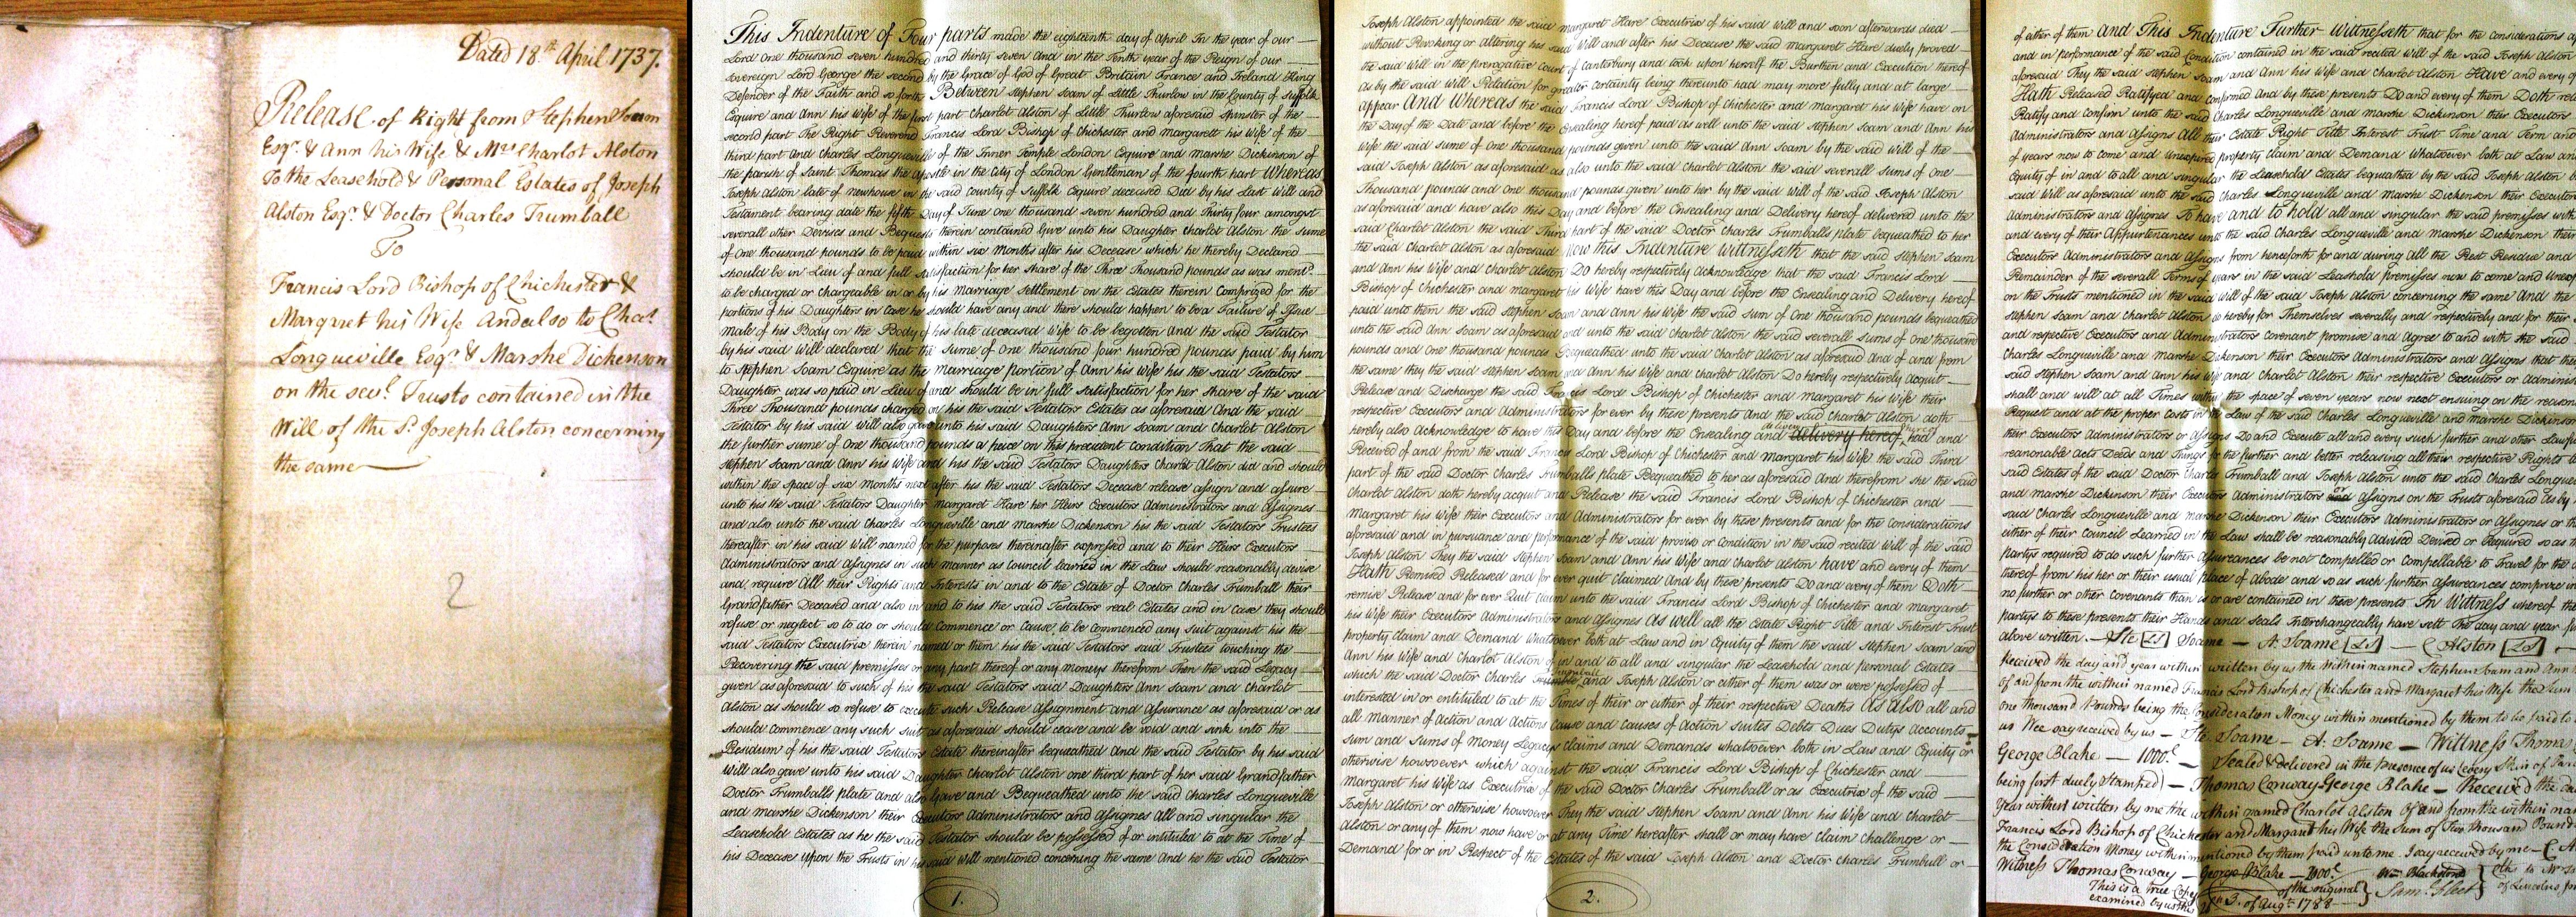 Dated 18th April 1737.
Release of Right from Stephen Soam
Esqr. & Ann his Wife & Mrs Charlot Alston
To the Leasehold & Personal Estates of Joseph
Alston Esqr. & Doctor Charles Trumball
To
Francis Lord Bishop of Chichester &
Margaret his Wife And also to Chas.
Longueville Esqr. & Marshe Dickenson
on the sevl. Trusts contained in the
Will of the sd. Joseph Alston concerning
the same
2
This Indenture of Four parts made the eighteenth day of April In the year of our
Lord One thousand seven hundred and thirty seven And in the Tenth year of the Reign of our
Sovereign Lord George the second by the Grace of God of Great Britain France and Ireland King
Defender of the Faith and so forth Between Stephen Soam of Little Thurlow in the County of Suffolk
Esquire and Ann his Wife of the first part Charlot Alston of Little Thurlow aforesaid Spinster of the
second part The Right Reverend Francis Lord Bishop of Chichester and Margarett his Wife of the
third part And Charles Longueville of the Inner Temple London Esquire and Marshe Dickinson of
the parish of Saint Thomas the Apostle in the City of London Gentleman of the fourth part Whereas
Joseph Alston late of Newhouse in the said County of Suffolk Esquire deceased Did by his Last Will and
Testament bearing date the fifth Day of June One thousand seven hundred and Thirty four amongst
severall other Devises and Bequests therein contained Give unto his Daughter Charlot Alston the sume
of One thousand pounds to be paid within six Months after his Decease which he thereby Declared
should be in Lieu of and full satisfaction for her share of the Three Thousand pounds as was mentd.
to be charged or chargeable in or by his Marriage Settlement on the Estates therein Comprized for the
portions of his Daughters in Case he should have any and there should happen to be a Failure of Issue
Male of his Body on the Body of his late deceased Wife to be begotten And the said Testator
by his said Will declared that the sume of One thousand four hundred pounds paid by him
to Stephen Soam Esquire as the Marriage portion of Ann his Wife his the said Testators
Daughter was so paid in Lieu of and should be in full Satisfaction for her share of the said
Three Thousand pounds charged on his the said Testators Estates as aforesaid And the said
Testator by his said Will also gave unto his said Daughters Ann Soam and Charlot Alston
the further sume of One thousand pounds a peice on this precedent Condition That the said
Stephen Soam and Ann his Wife and his the said Testators Daughter Charlot Alston did and should
within the space of six Months next after his the said Testators Decease release assign and assure
unto his the said Testators Daughter Margaret Hare her Heirs Executors Administrators and Assignes
and also unto the said Charles Longueville and Marshe Dickenson his the said Testators Trustees
thereafter in his said Will named for the purposes thereinafter expressed and to their Heirs Executors
Administrators and Assignes in such manner as Council learned in the Law should reasonably advise
and require All their Rights and Interests in and to the Estate of Doctor Charles Trumball their
Grandfather Deceased and also in and to his the said Testators real Estates and in case they should
refuse or neglect so to do or should Commence or Cause to be Commenced any Suit against his the
said Testators Executrix therein named or them his the said Testators said Trustees touching the
Recovering the said premisses or any part thereof or any moneys therefrom Then the said Legacy
given as aforesaid to such of his the said Testators said Daughters Ann Soam and Charlot
Alston as should so refuse to execute such Release Assignment and Assurance as aforesaid or as
should commence any such Suit as aforesaid should cease and be void and sink into the
Residuum of his the said Testators Estate thereinafter bequeathed And the said Testator by his said
Will also gave unto his said Daughter Charlot Alston one third part of her said Grandfather
Doctor Trumballs plate and also Gave and Bequeathed unto the said Charles Longueville
and Marshe Dickenson their Executors Administrators and Assignes All and singular the
Leasehold Estates as he the said Testator should be possessed of or intituled to at the Time of
his Decease Upon the Trusts in his said Will mentioned concerning the same And he the said Testator
1.
Joseph Alston appointed the said Margaret Hare Executrix of his said Will and soon afterwards died
without Revoking or Altering his said Will and after his Decease the said Margaret Hare duely proved
the said Will in the prerogative Court of Canterbury and took upon herself the Burthen and Execution thereof
as by the said Will Relation for greater certainty being thereunto had may more fully and at large
appear And Whereas the said Francis Lord Bishop of Chichester and Margaret his Wife have on
the Day of the Date and before the Ensealing hereof paid as well unto the said Stephen Soam and Ann his
Wife the said sume of One thousand pounds given unto the said Ann Soam by the said Will of the
said Joseph Alston as aforesaid as also unto the said Charlot Alston the said severall Sums of One
Thousand pounds and One thousand pounds given unto her by the said Will of the said Joseph Alston
as aforesaid and have also this Day and before the Ensealing and Delivery hereof delivered unto the
said Charlot Alston the said Third part of the said Doctor Charles Trumballs plate bequeathed to her
the said Charlot Alston as aforesaid Now this Indenture witnesseth that the said Stephen Soam
and Ann his Wife and Charlot Alston Do hereby respectively Acknowledge that the said Francis Lord
Bishop of Chichester and Margaret his Wife have this Day and before the Ensealing and Delivery hereof
paid unto them the said Stephen Soam and Ann his Wife the said Sum of One thousand pounds bequeathed
unto the said Ann Soam as aforesaid and unto the said Charlot Alston the said severall Sums of One thousand
pounds and One thousand pounds Bequeathed unto the said Charlot Alston as aforesaid And of and from
the same they the said Stephen Soam and Ann his Wife and Charlot Alston Do hereby respectively Acquit
Release and Discharge the said Francis Lord Bishop of Chichester and Margaret his Wife their
respective Executors and Administrators for ever by these presents And the said Charlot Alston doth
hereby also Acknowledge to have this Day and before the Ensealing and delivery hereof had and
Received of and from the said Francis Lord Bishop of Chichester and Margaret his Wife the said Third
part of the said Doctor Charles Trumballs plate Bequeathed to her as aforesaid And therefrom she the said
Charlot Alston doth hereby acquit and Release the said Francis Lord Bishop of Chichester and
Margaret his Wife their Executors and Administrators for ever by these presents and for the Considerations
aforesaid and in pursuance and performance of the said proviso or Condition in the said recited Will of the said
Joseph Alston They the said Stephen Soam and Ann his Wife and Charlot Alston have and every of them
Hath Remised Released and for ever quit claimed And by these presents Do and every of them Doth
remise Release and for ever Quit claim unto the said Francis Lord Bishop of Chichester and Margaret
his Wife their Executors Administrators and Assignes As well all the Estate Right Title and Interest Trust
property Claim and Demand Whatsoever both at Law and in Equity of them the said Stephen Soam and
Ann his Wife and Charlot Alston of in and to all and singular the Leasehold and personal Estates
which the said Doctor Charles Trumball and Joseph Alston or either of them was or were possessed of
interested in or entituled to at the Times of their or either of their respective Deaths As also all and
all Manner of Action and Actions Cause and Causes of Action Suites Debts Dues Dutys Accounts
Sum and Sums of Money Legacys Claims and Demands whatsoever both in Law and Equity or
otherwise howsoever which against the said Francis Lord Bishop of Chichester and
Margaret his Wife as Executrix of the said Doctor Charles Trumball or as Executrix of the said
Joseph Alston or otherwise howsoever They the said Stephen Soam and Ann his Wife and Charlot
Alston or any of them now have or at any Time hereafter shall or may have Claim Challenge or
Demand for or in Respect of the Estates of the said Joseph Alston and Doctor Charles Trumbull or
2.
of either of them And This Indenture Further Witnesseth that for the considerations
and in performance of the said Condition contained in the said recited Will of the said Joseph Alston
aforesaid They the said Stephen Soam and Ann his Wife and Charlot Alston Have and every of
Hath Released Ratifyed and Confirmed And by these presents Do and every of them Doth
Ratify and Confirm unto the said Charles Longueville and Marshe Dickinson their Executors
Administrators and Assigns All their Estate Right Title Interest Trust Time and Term and
of years now to come and Unexpired property Claim and Demand Whatsoever both at Law and
Equity of in and to all and singular the Leasehold Estates bequeathed by the said Joseph Alston
said Will as aforesaid unto the said Charles Longueville and Marshe Dickinson their
Administrators and Assignes To have and to hold all and singular the said premisses
and every of their Appurtenances unto the said Charles Longueville and Marshe Dickinson their
Executors Administrators and Assigns from henceforth for and during All the Rest Residue and
Remainder of the severall Terms of years in the said Leashold premisses now to come and
on the Trusts mentioned in the said Will of the said Joseph Alston concerning the same And the
Stephen Soam and Charlot Alston do hereby for Themselves severally and respectively and for their
and respective Executors and Administrators covenant promise and Agree to and with the said
Charles Longueville and Marshe Dickenson their Executors Administrators and Assigns that
said Stephen Soam and Ann his Wife and Charlot Alston their respective Executors or
shall and will at all Times within the space of seven years now next ensuing on the
Request and at the proper Cost in the Law of the said Charles Longueville and Marshe Dickinson
their Executors Administrators or Assigns Do and Execute all and every such further and other
reasonable Acts Deeds and Things for the further and better releasing all their respective Rights
said Estates of the said Doctor Charles Trumball and Joseph Alston unto the said Charles
and Marshe Dickinson their Executors Administrators or Assigns on the Trusts aforesaid as by
said Charles Longueville and Marshe Dickenson their Executors Administrators or Assignes or
either of their Council Learned in the Law shall be reasonably Advised Devised or Required so as
partys required to do such further Assureances be not compelled or Compellable to Travel for the
thereof from his her or their usual place of Abode and so as such further Assureances comprize
no further or other Covenants than is or are contained in these presents In Wittness whereof the
partys to these presents their Hands and Seals Interchangeably have sett the Day and year
above written. Ste LS Soame — A. Soame LS — C Alston LS
Received the day and year within written by us the within named Stephen Soam and Ann
of and from the within named Francis Lord Bishop of Chichester and Margaret his Wife the Sum
One thousand Pounds being the Consideration Money within mentioned by them to be paid
us Wee say received by us — Ste. Soame — A. Soame — Wittness
George Blake — 1000£ — Sealed & delivered in the presence of us (every Skin of
being first duely Stamped) — Thomas Conway George Blake — Received the
Year within written by me the within named Charlot Alston Of and from the within
Francis Lord Bishop of Chichester and Margaret his Wife the Sum of Two thousand
the Consideration Money within mentioned by them paid unto me. I say received by me — C.
Witness Thomas Conway — George Blake — 2000£
This is a true Copy of the original
examined by us this 3. of Augt. 1788
Saml. Fleet
of Lincolns